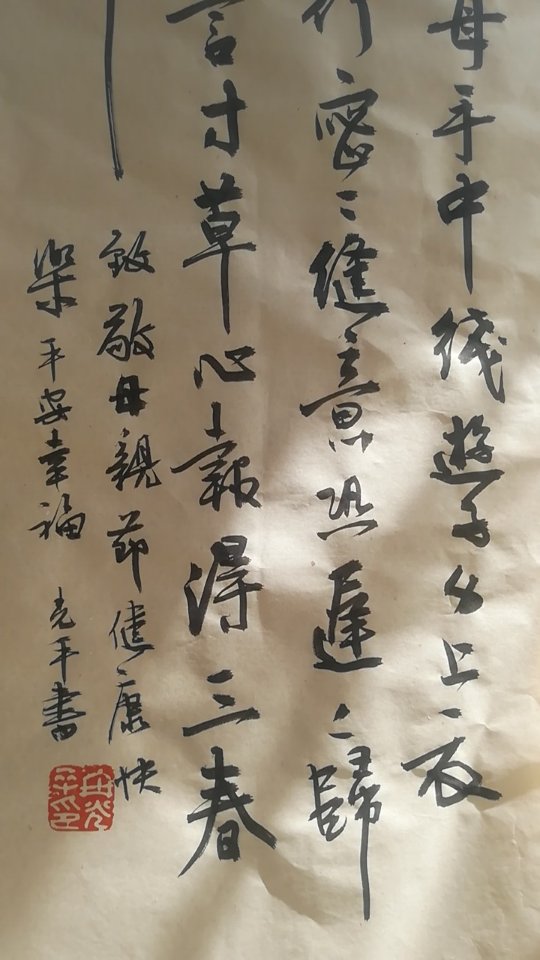 母手中綫遊子身上衣
行密〻縫意恐遲〻歸
言寸草心報得三春
致敬母親節健康快
樂平安幸福 光平書